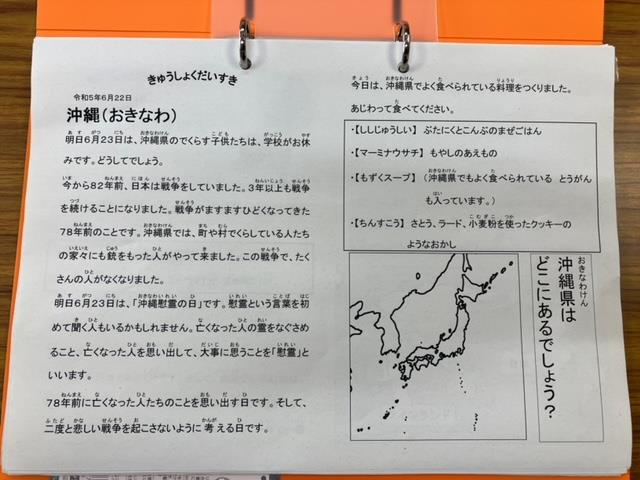 きゅうしょくだいすき
令和5年6月22日
沖縄(おきなわ)
明日6月23日は、沖縄県のでくらす子供たちは、学校がお休
みです。どうしてでしょう。
今から82年前、日本は戦争をしていました。3年以上も戦争
を続けることになりました。戦争がますますひどくなってきた
78年前のことです。沖縄県では、町や村でくらしている人たち
の家々にも銃をもった人がやって来ました。この戦争で、たく
さんの人がなくなりました。
明日6月23日は、「沖縄慰霊の日」です。慰霊という言葉を初
めて聞く人もいるかもしれません。亡くなった人の霊をなぐさめ
ること、亡くなった人を思い出して、大事に思うことを「慰霊」と
いいます。
78年前に亡くなった人たちのことを思い出す日です。そして、
二度と悲しい戦争を起こさないように考える日です。
今日は、沖縄県でよく食べられている料理をつくりました。
あじわって食べてください。
・【ししじゅうしい】 ぶたにくとこんぶのまぜごはん
・【マーミナウサチ】 もやしのあえもの
・【もずくスープ】 (沖縄県でもよく食べられている とうがん
も入っています。)
・【ちんすこう】 さとう、ラード、小麦粉を使ったクッキーの
ようなおかし
沖縄県は
どこにあるでしょう?